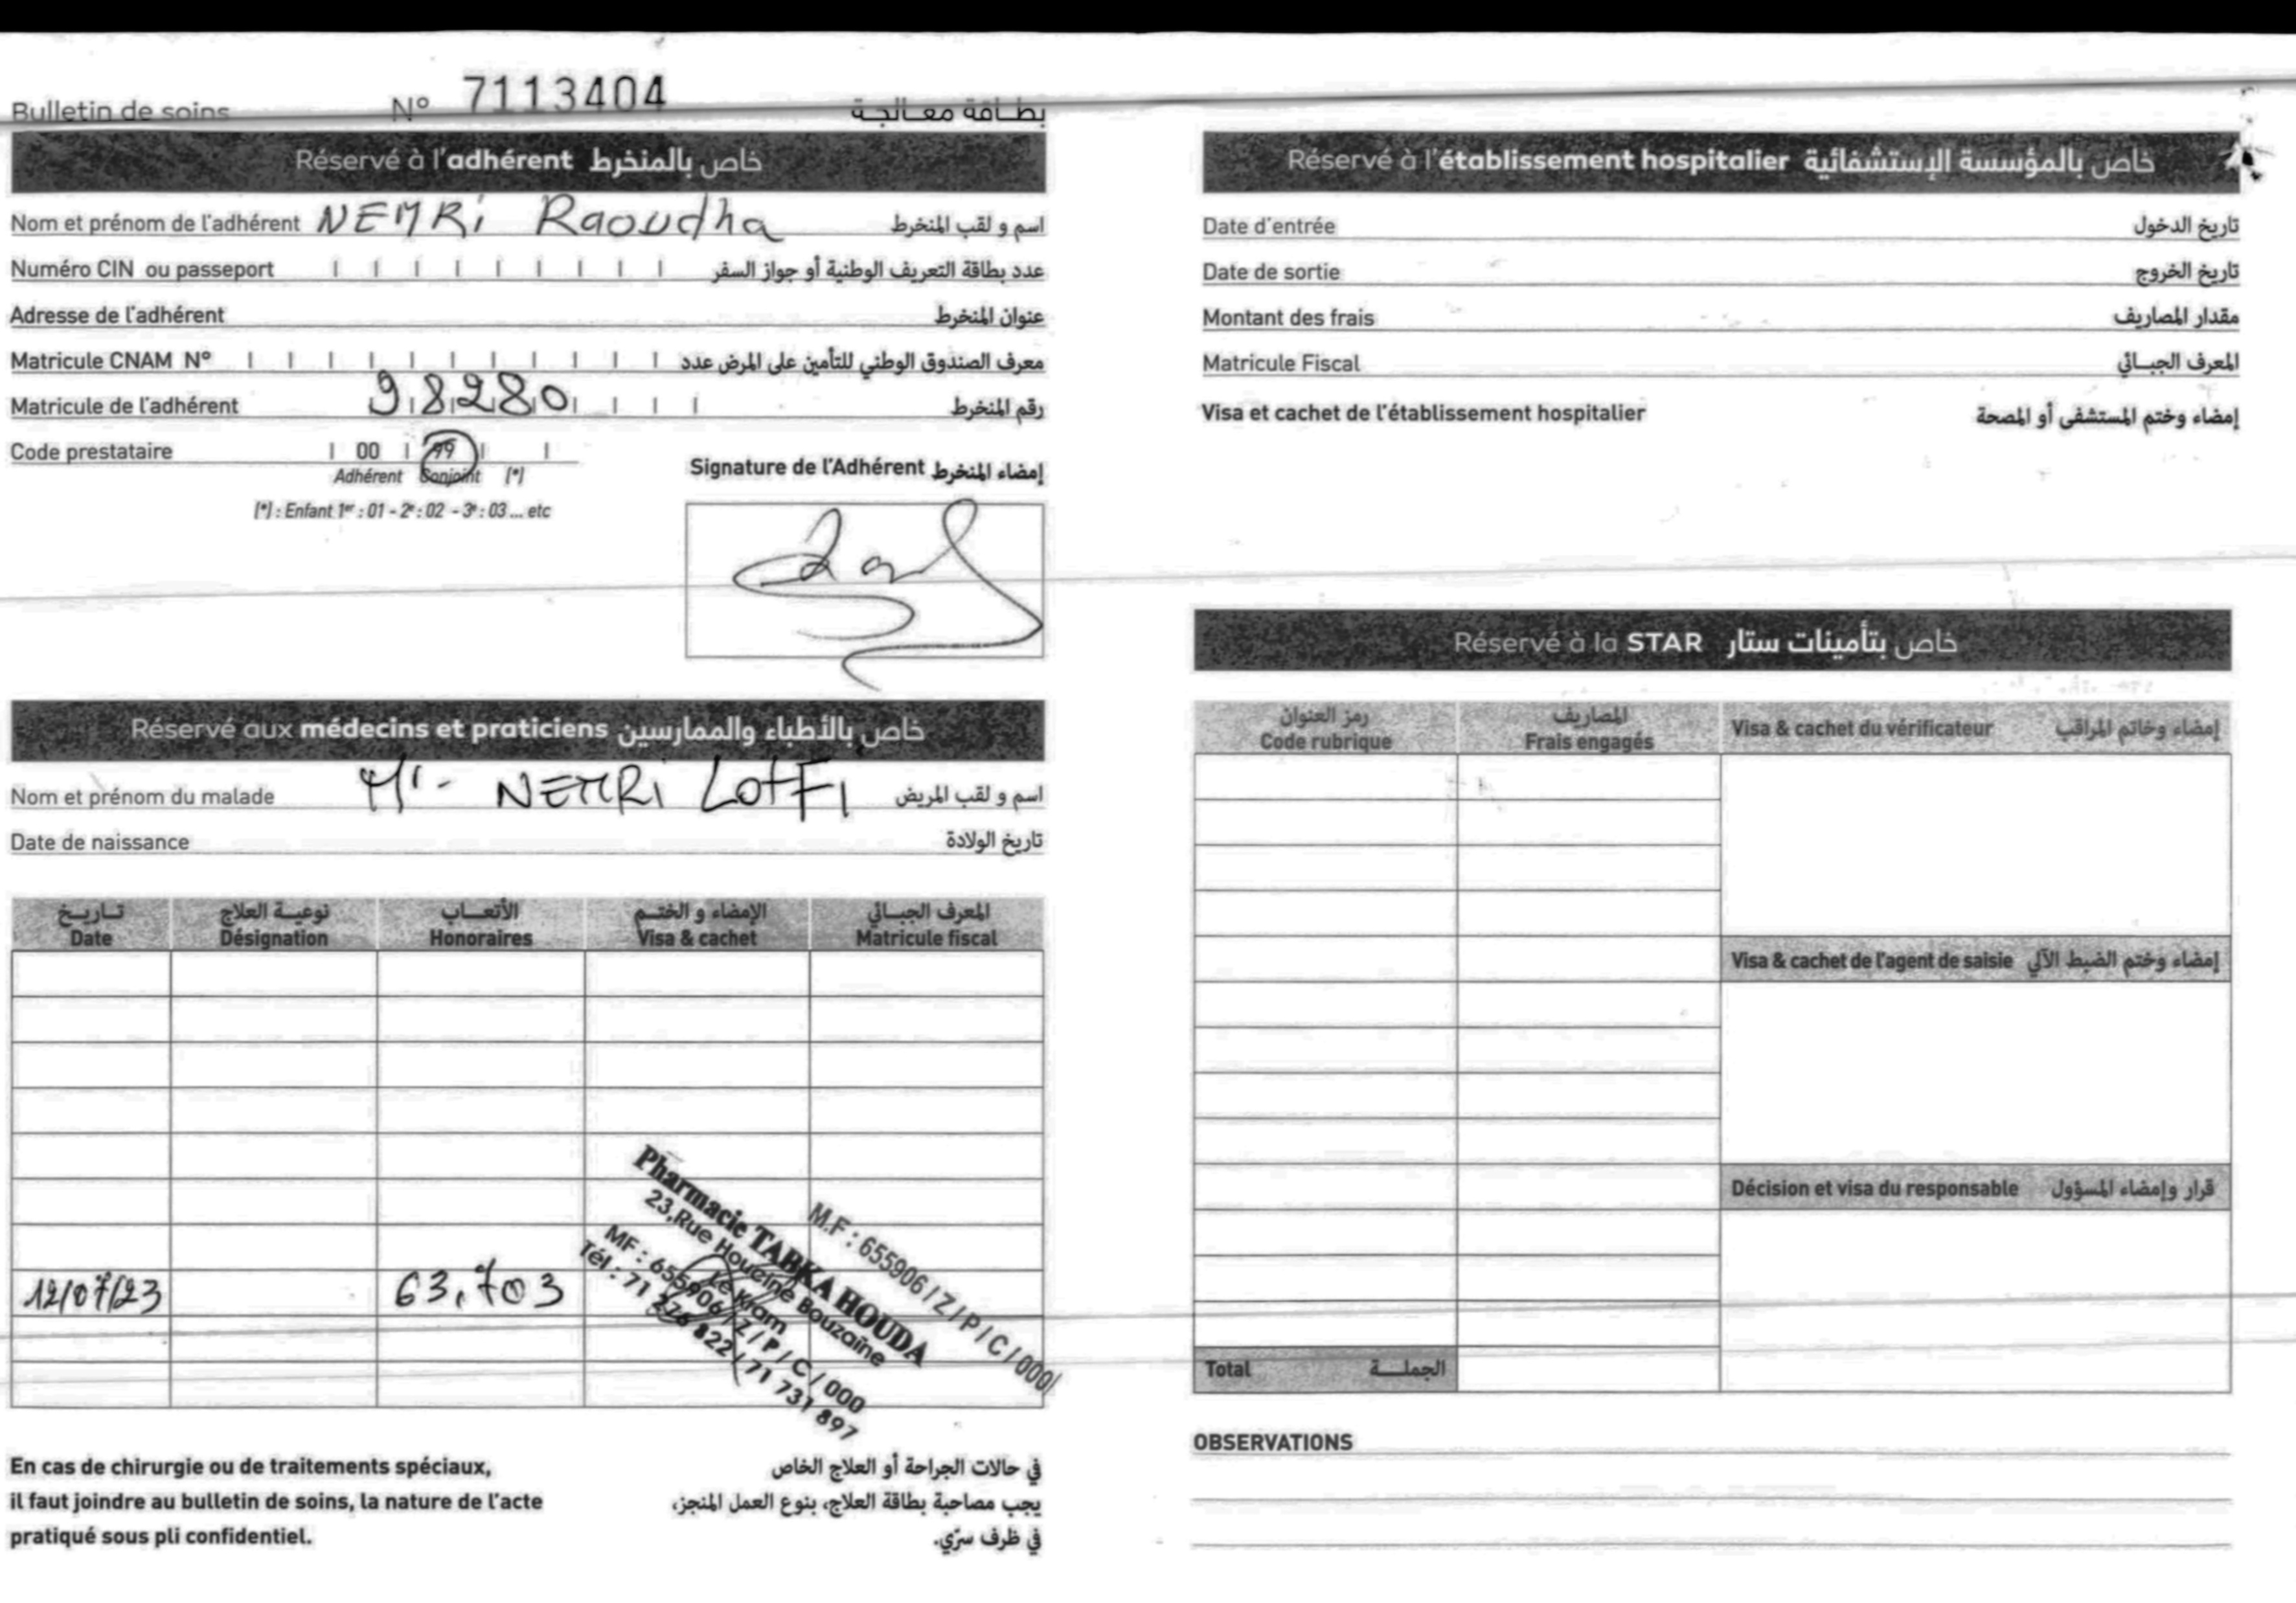 Bulletin de soins N° 7113404 بطاقة معالجة
Réservé à l'adhérent خاص بالمنخرط
Nom et prénom de l'adhérent NEMRi Raoudha اسم و لقب المنخرط
Numéro CIN ou passeport عدد بطاقة التعريف الوطنية أو جواز السفر
Adresse de l'adhérent عنوان المنخرط
Matricule CNAM N° معرف الصندوق الوطني للتأمين على المرض عدد
Matricule de l'adhérent 98280 رقم المنخرط
Code prestataire 00 99
Adhérent Conjoint (*)
(*) : Enfant 1er : 01 - 2e : 02 - 3e : 03 ... etc
Signature de l'Adhérent إمضاء المنخرط
Réservé aux médecins et praticiens خاص بالأطباء والممارسين
Nom et prénom du malade Mr - NEMRi LOTFI اسم و لقب المريض
Date de naissance تاريخ الولادة
تاريخ نوعية العلاج الأتعاب الإمضاء و الختم المعرف الجبائي
Date Désignation Honoraires Visa & cachet Matricule fiscal
12/07/23 63,703
Pharmacie TABKA HOUDA
23,Rue Houcine Bouzaine
Le Kram
MF : 655906 / Z / P / C / 000
Tél : 71 276 822 / 71 731 897
M.F : 655906 / Z / P / C / 000/
En cas de chirurgie ou de traitements spéciaux,
il faut joindre au bulletin de soins, la nature de l'acte
pratiqué sous pli confidentiel.
في حالات الجراحة أو العلاج الخاص
يجب مصاحبة بطاقة العلاج، بنوع العمل المنجز،
في ظرف سرّي.
Réservé à l'établissement hospitalier خاص بالمؤسسة الإستشفائية
Date d'entrée تاريخ الدخول
Date de sortie تاريخ الخروج
Montant des frais مقدار المصاريف
Matricule Fiscal المعرف الجبائي
Visa et cachet de l'établissement hospitalier إمضاء وختم المستشفى أو المصحة
Réservé à la STAR خاص بتأمينات ستار
رمز العنوان المصاريف
Code rubrique Frais engagés Visa & cachet du vérificateur إمضاء وخاتم المراقب
Visa & cachet de l'agent de saisie إمضاء وختم الضبط الآلي
Décision et visa du responsable قرار وإمضاء المسؤول
Total الجملة
OBSERVATIONS